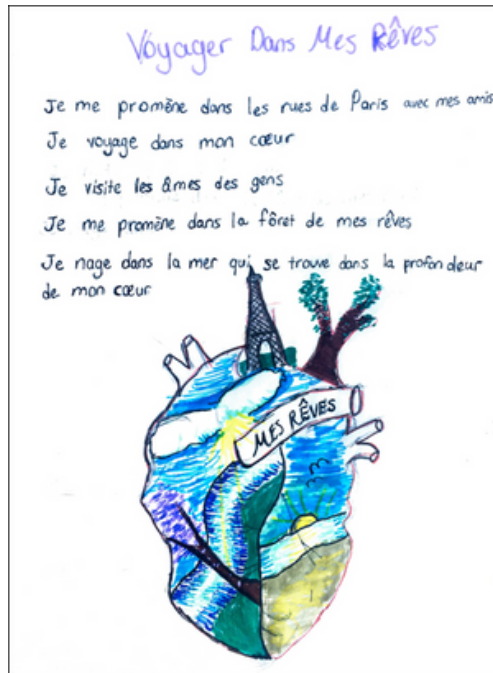 Voyager Dans Mes Rêves
Je me promène dans les rues de Paris avec mes amis
Je voyage dans mon cœur
Je visite les âmes des gens
Je me promène dans la fôret de mes rêves
Je nage dans la mer qui se trouve dans la profondeur
de mon cœur
MES RÊVES